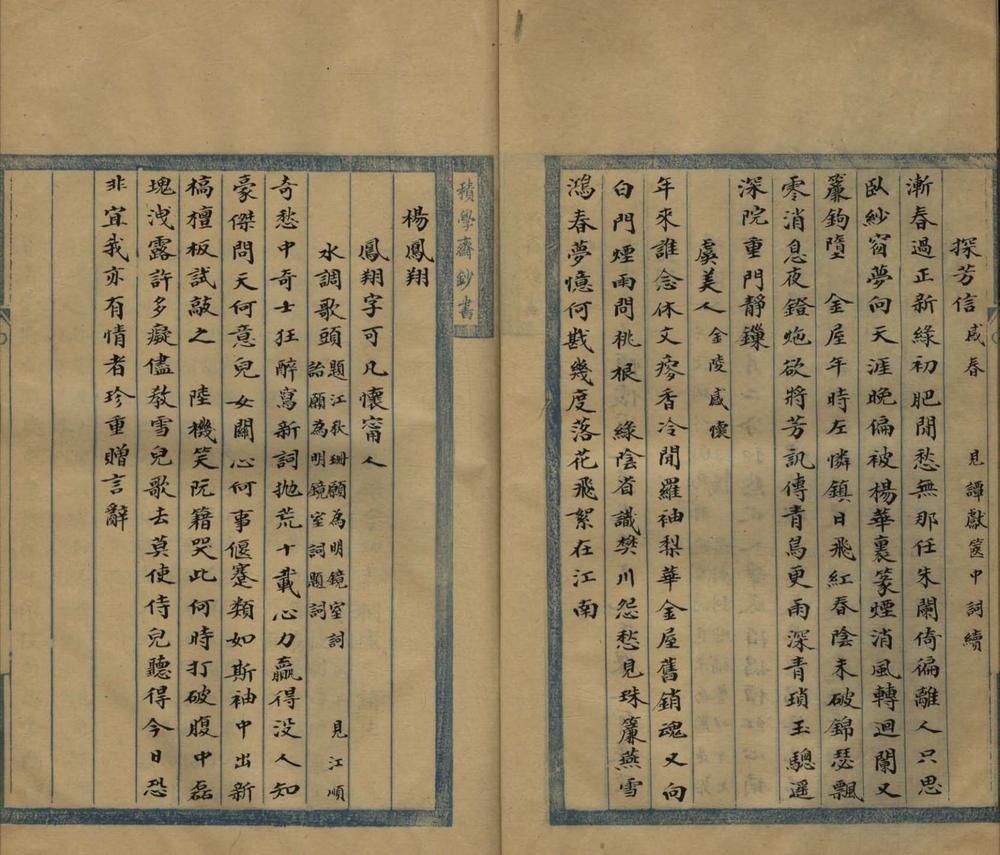 探芳信 感春 見譚獻篋中詞續
漸春過正新綠初肥閒愁無那任朱闌倚徧離人只思
臥紗窗夢向天涯晚偏被楊華裏篆煙消風轉迴闌又
簾鉤墮 金屋年時左憐鎮日飛紅春陰未破錦瑟飄
零消息夜鐙炧欲將芳訊傳青鳥更雨深青瑣玉驄遥
深院重門靜鏁
虞美人 金陵感懷
年來誰念休文瘳香冷閒羅袖梨華金屋舊銷魂又向
白門煙雨問桃根綠陰省識樊川怨愁見珠簾燕雪
鴻春夢憶何戡幾度落花飛絮在江南
積學齋鈔書
楊鳳翔
鳳翔字可凡懷甯人
水調歌頭 題江秋珊願為明鏡室詞 見江順
詒願為明鏡室詞題詞
奇愁中奇士狂醉寫新詞拋荒十載心力贏得没人知
豪傑問天何意兒女關心何事偃蹇類如斯袖中出新
槁檀板試敲之 陸機笑阮籍哭此何時打破腹中磊
瑰洩露許多癡儘教雪兒歌去莫使侍兒聽得今日恐
非宜我亦有情者珍重贈言辭